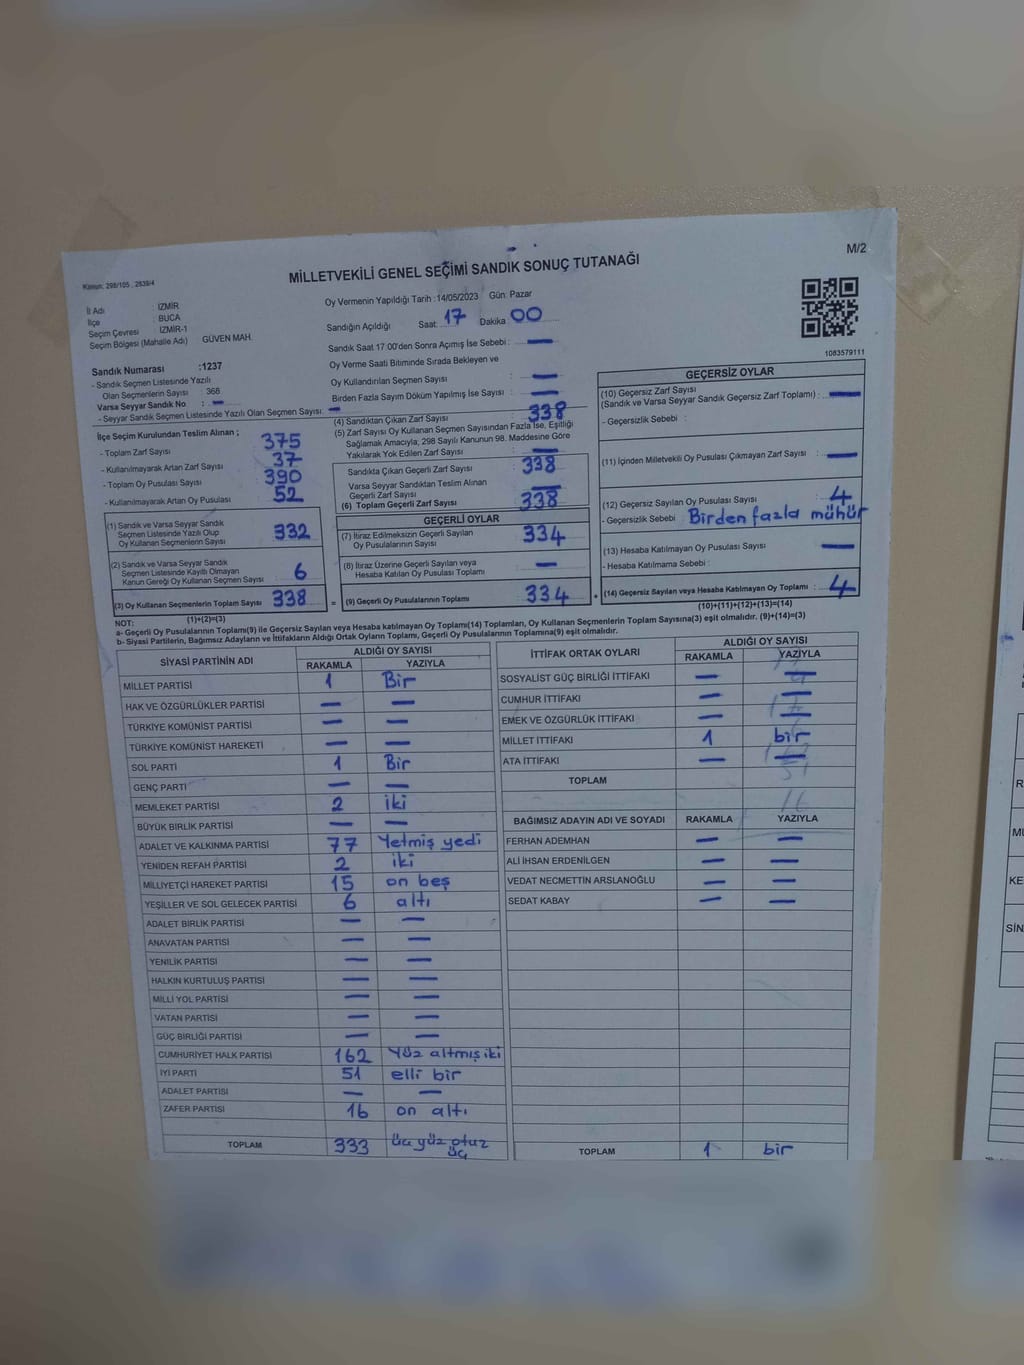 M/2
Kanun: 298/105 , 2839/4
MİLLETVEKİLİ GENEL SEÇİMİ SANDIK SONUÇ TUTANAĞI
İl Adı : İZMİR
İlçe : BUCA
Seçim Çevresi : İZMİR-1
Seçim Bölgesi (Mahalle Adı) GÜVEN MAH.
Oy Vermenin Yapıldığı Tarih :14/05/2023 Gün: Pazar
Sandığın Açıldığı Saat: 17 Dakika 00
Sandık Saat 17:00'den Sonra Açımış İse Sebebi : —
Oy Verme Saati Bitiminde Sırada Bekleyen ve
Oy Kullandırılan Seçmen Sayısı : —
Birden Fazla Sayım Döküm Yapılmış İse Sayısı : —
1083579111
Sandık Numarası :1237
- Sandık Seçmen Listesinde Yazılı
Olan Seçmenlerin Sayısı : 368
Varsa Seyyar Sandık No : —
- Seyyar Sandık Seçmen Listesinde Yazılı Olan Seçmen Sayısı: —
İlçe Seçim Kurulundan Teslim Alınan ;
- Toplam Zarf Sayısı 375
- Kullanılmayarak Artan Zarf Sayısı 37
- Toplam Oy Pusulası Sayısı 390
- Kullanılmayarak Artan Oy Pusulası 52
(1) Sandık ve Varsa Seyyar Sandık
Seçmen Listesinde Yazılı Olup
Oy Kullanan Seçmenlerin Sayısı 332
(2) Sandık ve Varsa Seyyar Sandık
Seçmen Listesinde Kayıtlı Olmayan
Kanun Gereği Oy Kullanan Seçmen Sayısı 6
(3) Oy Kullanan Seçmenlerin Toplam Sayısı 338
(1)+(2)=(3)
(4) Sandıktan Çıkan Zarf Sayısı : 338
(5) Zarf Sayısı Oy Kullanan Seçmen Sayısından Fazla İse, Eşitliği
Sağlamak Amacıyla; 298 Sayılı Kanunun 98. Maddesine Göre
Yakılarak Yok Edilen Zarf Sayısı : —
Sandıkta Çıkan Geçerli Zarf Sayısı : 338
Varsa Seyyar Sandıktan Teslim Alınan
Geçerli Zarf Sayısı : —
(6) Toplam Geçerli Zarf Sayısı : 338
GEÇERLİ OYLAR
(7) İtiraz Edilmeksizin Geçerli Sayılan
Oy Pusulalarının Sayısı : 334
(8) İtiraz Üzerine Geçerli Sayılan veya
Hesaba Katılan Oy Pusulası Toplamı : —
= (9) Geçerli Oy Pusulalarının Toplamı : 334 +
GEÇERSİZ OYLAR
(10) Geçersiz Zarf Sayısı
(Sandık ve Varsa Seyyar Sandık Geçersiz Zarf Toplamı) : —
- Geçersizlik Sebebi :
(11) İçinden Milletvekili Oy Pusulası Çıkmayan Zarf Sayısı : —
(12) Geçersiz Sayılan Oy Pusulası Sayısı : 4
- Geçersizlik Sebebi Birden fazla mühür
(13) Hesaba Katılmayan Oy Pusulası Sayısı : —
- Hesaba Katılmama Sebebi :
(14) Geçersiz Sayılan veya Hesaba Katılmayan Oy Toplamı : 4
(10)+(11)+(12)+(13)=(14)
NOT:
a- Geçerli Oy Pusulalarının Toplamı(9) ile Geçersiz Sayılan veya Hesaba katılmayan Oy Toplamı(14) Toplamları, Oy Kullanan Seçmenlerin Toplam Sayısına(3) eşit olmalıdır. (9)+(14)=(3)
b- Siyasi Partilerin, Bağımsız Adayların ve İttifakların Aldığı Ortak Oyların Toplamı, Geçerli Oy Pusulalarının Toplamına(9) eşit olmalıdır.
SİYASİ PARTİNİN ADI ALDIĞI OY SAYISI
RAKAMLA YAZIYLA
MİLLET PARTİSİ 1 Bir
HAK VE ÖZGÜRLÜKLER PARTİSİ — —
TÜRKİYE KOMÜNİST PARTİSİ — —
TÜRKİYE KOMÜNİST HAREKETİ — —
SOL PARTİ 1 Bir
GENÇ PARTİ — —
MEMLEKET PARTİSİ 2 iki
BÜYÜK BİRLİK PARTİSİ — —
ADALET VE KALKINMA PARTİSİ 77 Yetmiş yedi
YENİDEN REFAH PARTİSİ 2 iki
MİLLİYETÇİ HAREKET PARTİSİ 15 on beş
YEŞİLLER VE SOL GELECEK PARTİSİ 6 altı
ADALET BİRLİK PARTİSİ — —
ANAVATAN PARTİSİ — —
YENİLİK PARTİSİ — —
HALKIN KURTULUŞ PARTİSİ — —
MİLLİ YOL PARTİSİ — —
VATAN PARTİSİ — —
GÜÇ BİRLİĞİ PARTİSİ — —
CUMHURİYET HALK PARTİSİ 162 Yüz altmış iki
İYİ PARTİ 51 elli bir
ADALET PARTİSİ — —
ZAFER PARTİSİ 16 on altı
TOPLAM 333 üç yüz otuz üç
İTTİFAK ORTAK OYLARI ALDIĞI OY SAYISI
RAKAMLA YAZIYLA
SOSYALİST GÜÇ BİRLİĞİ İTTİFAKI — —
CUMHUR İTTİFAKI — —
EMEK VE ÖZGÜRLÜK İTTİFAKI — —
MİLLET İTTİFAKI 1 bir
ATA İTTİFAKI — —
TOPLAM
BAĞIMSIZ ADAYIN ADI VE SOYADI RAKAMLA YAZIYLA
FERHAN ADEMHAN — —
ALİ İHSAN ERDENİLGEN — —
VEDAT NECMETTİN ARSLANOĞLU — —
SEDAT KABAY — —
TOPLAM 1 bir